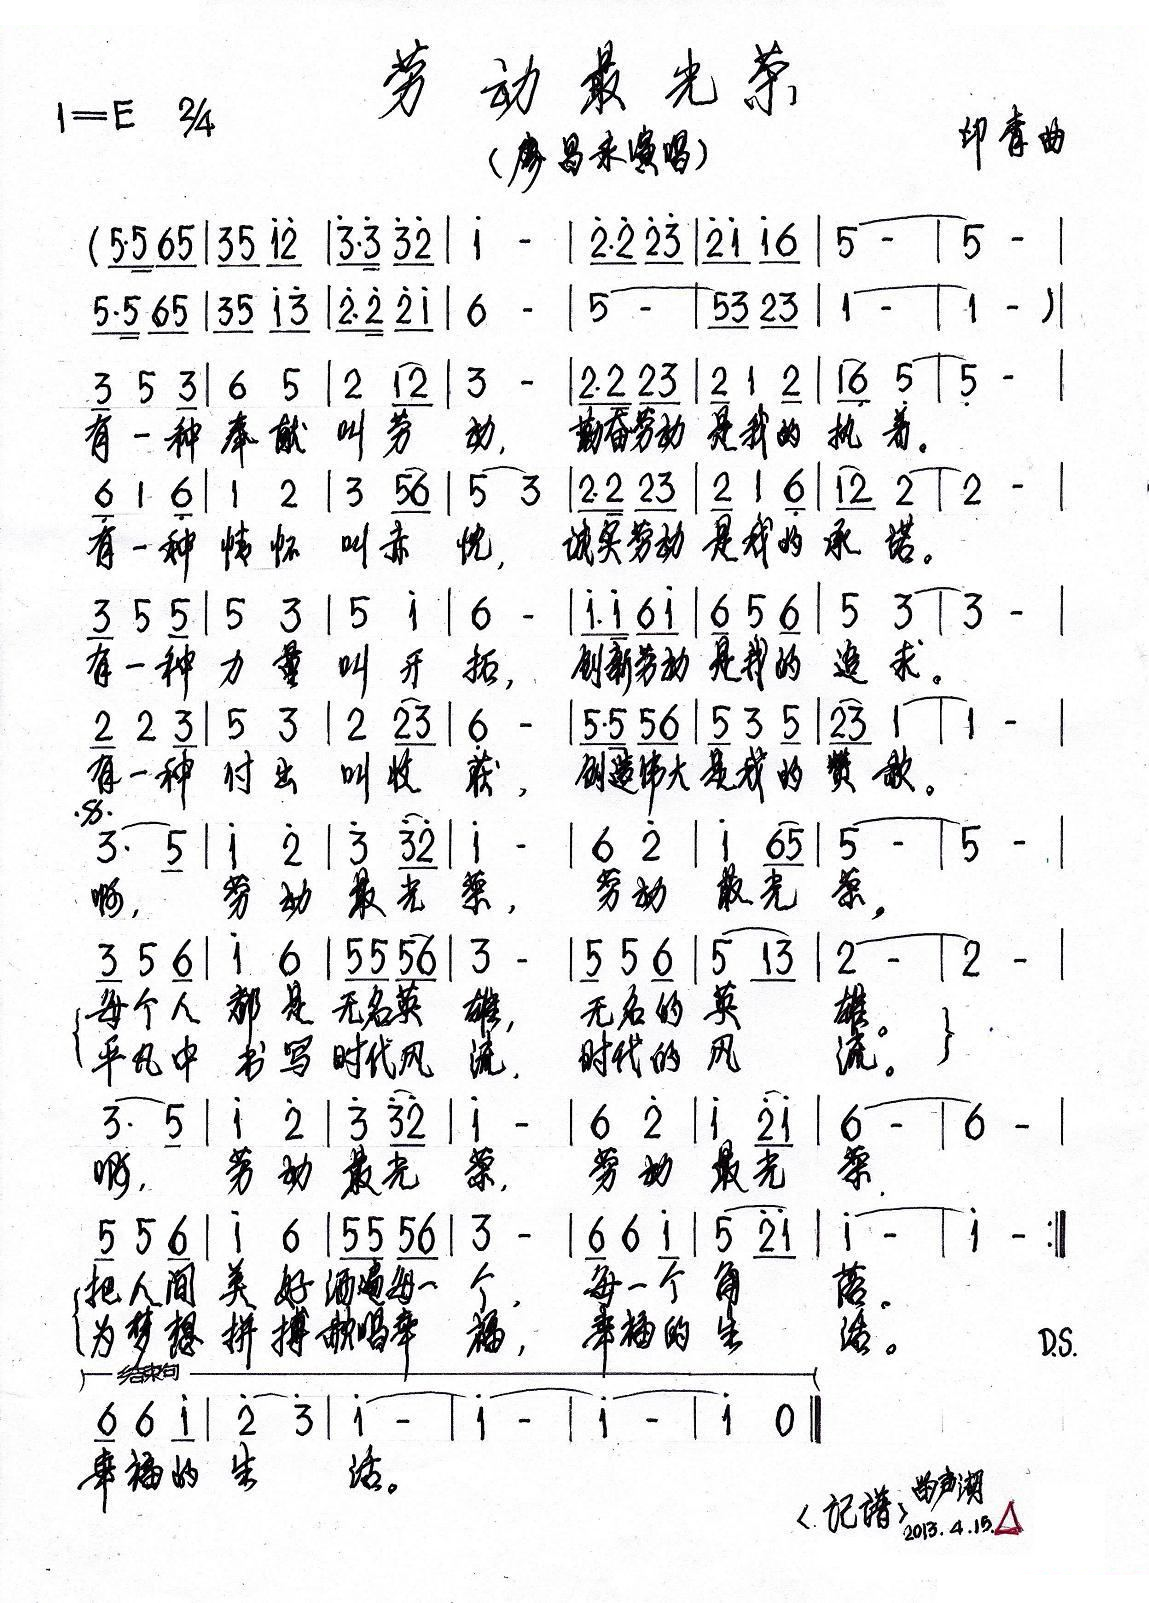 劳动最光荣
1=E 2/4
(廖昌永演唱)
印青曲
(5·5 65|35 i2|3·3 32|i -|2·2 23|2i i6|5 -|5 -|
5·5 65|35 i3|2·2 2i|6 -|5 -|53 23|1 -|1 -)|
3 5 3|6 5|2 12|3 -|2·2 23|2 1 2|16 5|5 -|
有一种奉献叫劳动,勤奋劳动是我的执着。
6 1 6|1 2|3 56|5 3|2·2 23|2 1 6|12 2|2 -|
有一种情怀叫赤忱,诚实劳动是我的承诺。
3 5 5|5 3|5 i|6 -|i·i 6i|6 5 6|5 3|3 -|
有一种力量叫开拓,创新劳动是我的追求。
2 2 3|5 3|2 23|6 -|5·5 56|5 3 5|23 1|1 -|
有一种付出叫收获,创造伟大是我的赞歌。
3· 5|i 2|3 32|i -|6 2|i 65|5 -|5 -|
啊,劳动最光荣,劳动最光荣,
3 5 6|i 6|55 56|3 -|5 5 6|5 13|2 -|2 -|
每个人都是无名英雄,无名的英雄。
平凡中书写时代风流,时代的风流。
3· 5|i 2|3 32|i -|6 2|i 2i|6 -|6 -|
啊,劳动最光荣,劳动最光荣,
5 5 6|i 6|55 56|3 -|6 6 i|5 2i|i -|i -:‖
把人间美好洒遍每一个,每一个角落。
为梦想拼搏歌唱幸福,幸福的生活。
D.S.
结束句
6 6 i|2 3|i -|i -|i -|i 0‖
幸福的生活。
〈记谱〉曲声湖
2013.4.15.